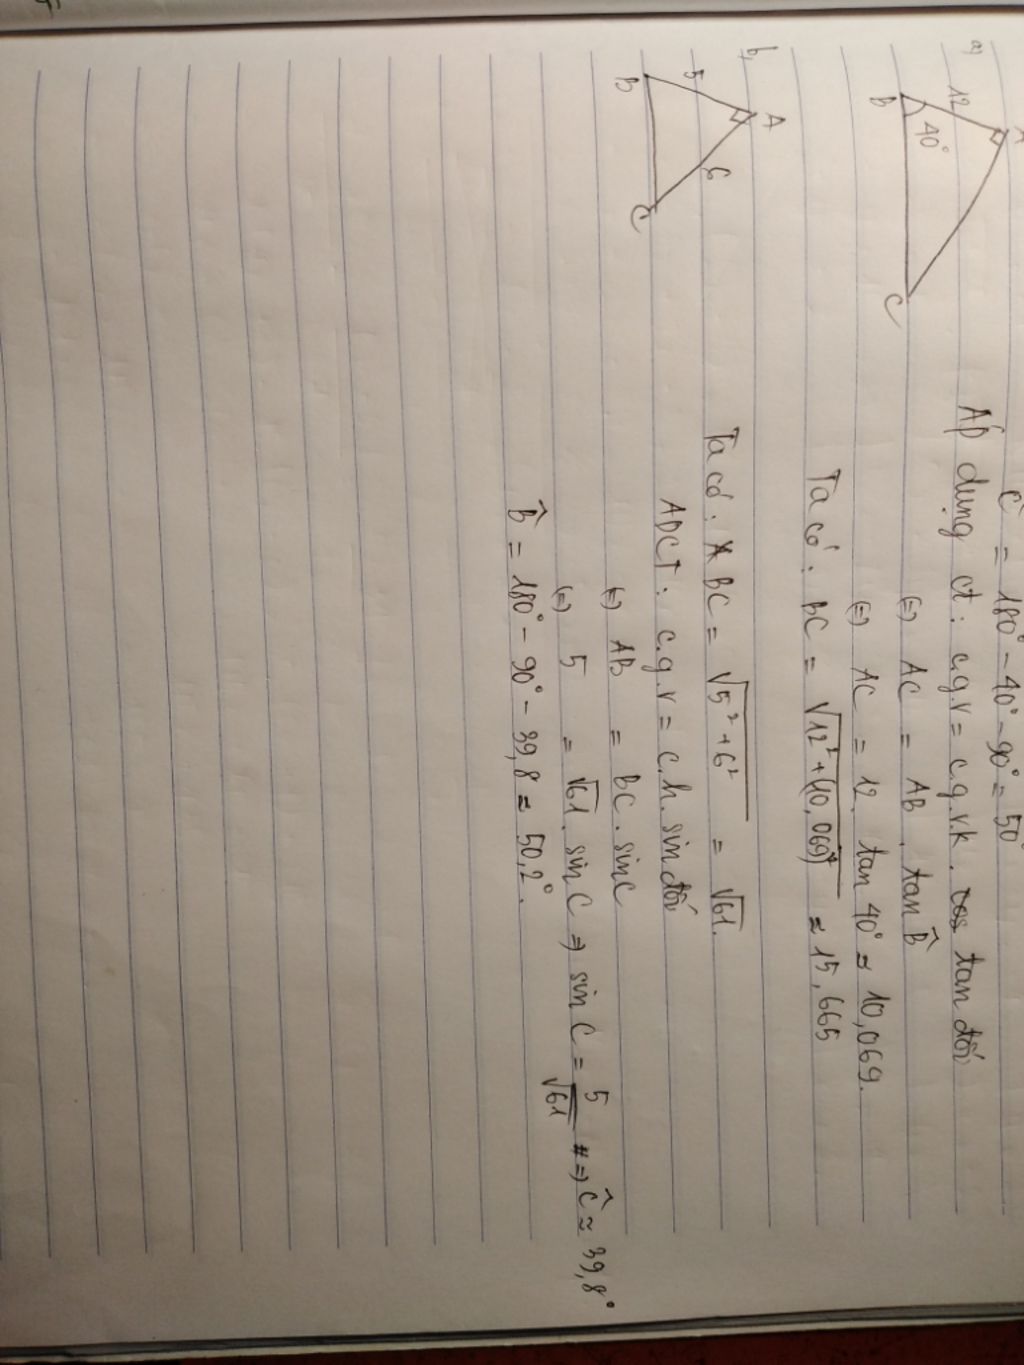 a)
A
12
40°
B
C
Ĉ = 180° - 40° - 90° = 50°
Áp dụng ct: c.g.v = c.g.v.k . tan đối
(=) AC = AB . tan B̂
(=) AC = 12. tan 40° ≈ 10,069.
Ta có: BC = √12² + (10,069)² ≈ 15,665
b,
A
5
6
B
C
Ta có: BC = √5² + 6² = √61.
ADCT: c.g.v = c.h. sin đối
(=) AB = BC . sin C
(=) 5 = √61 . sin C ⇒ sin C = 5/√61 ⇒ Ĉ ≈ 39,8°
B̂ = 180° - 90° - 39,8 ≈ 50,2°.